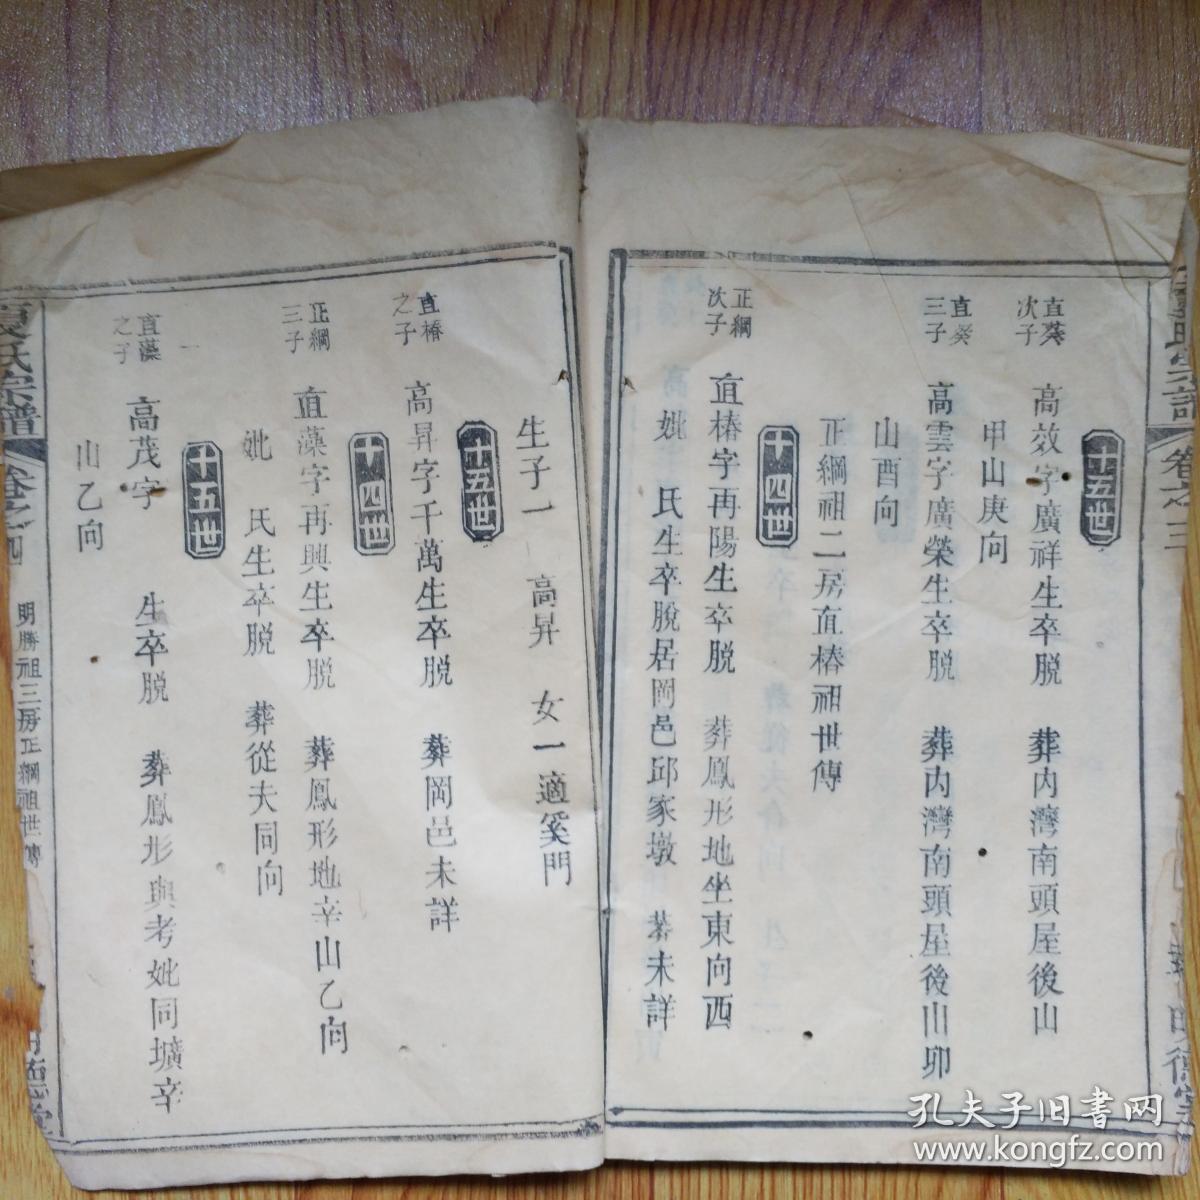 十五世
直葵次子
高效字廣祥生卒脱 葬内灣南頭屋後山
甲山庚向
直癸三子
高雲字廣榮生卒脱 葬内灣南頭屋後山卯
山酉向
正綱祖二房直椿祖世傳
十四世
正綱次子
直椿字再陽生卒脱 葬鳳形地坐東向西
妣 氏生卒脱居岡邑邱家墩 葬未詳
生子一 高昇 女一適 門
十五世
直椿之子
高昇字千萬生卒脱 葬岡邑未詳
十四世
正綱三子
直藻字再興生卒脱 葬鳳形地辛山乙向
妣 氏生卒脱 葬從夫同向
十五世
直藻之子
高茂字 生卒脱 葬鳳形與考妣同壙辛
山乙向
氏宗譜
卷之四
明勝祖三房正綱祖世傳
卷之三
明德堂
孔夫子旧书网
www.kongfz.com